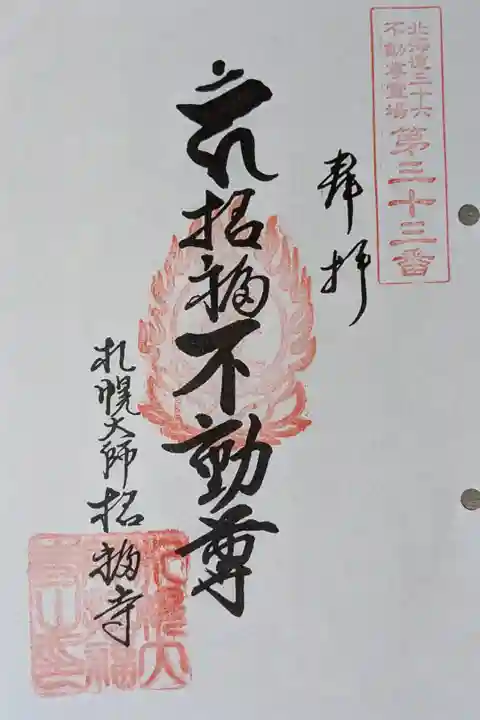 北海道三十六
不動尊霊場
第三十三番
奉拝
招福不動尊
札幌大師招福寺